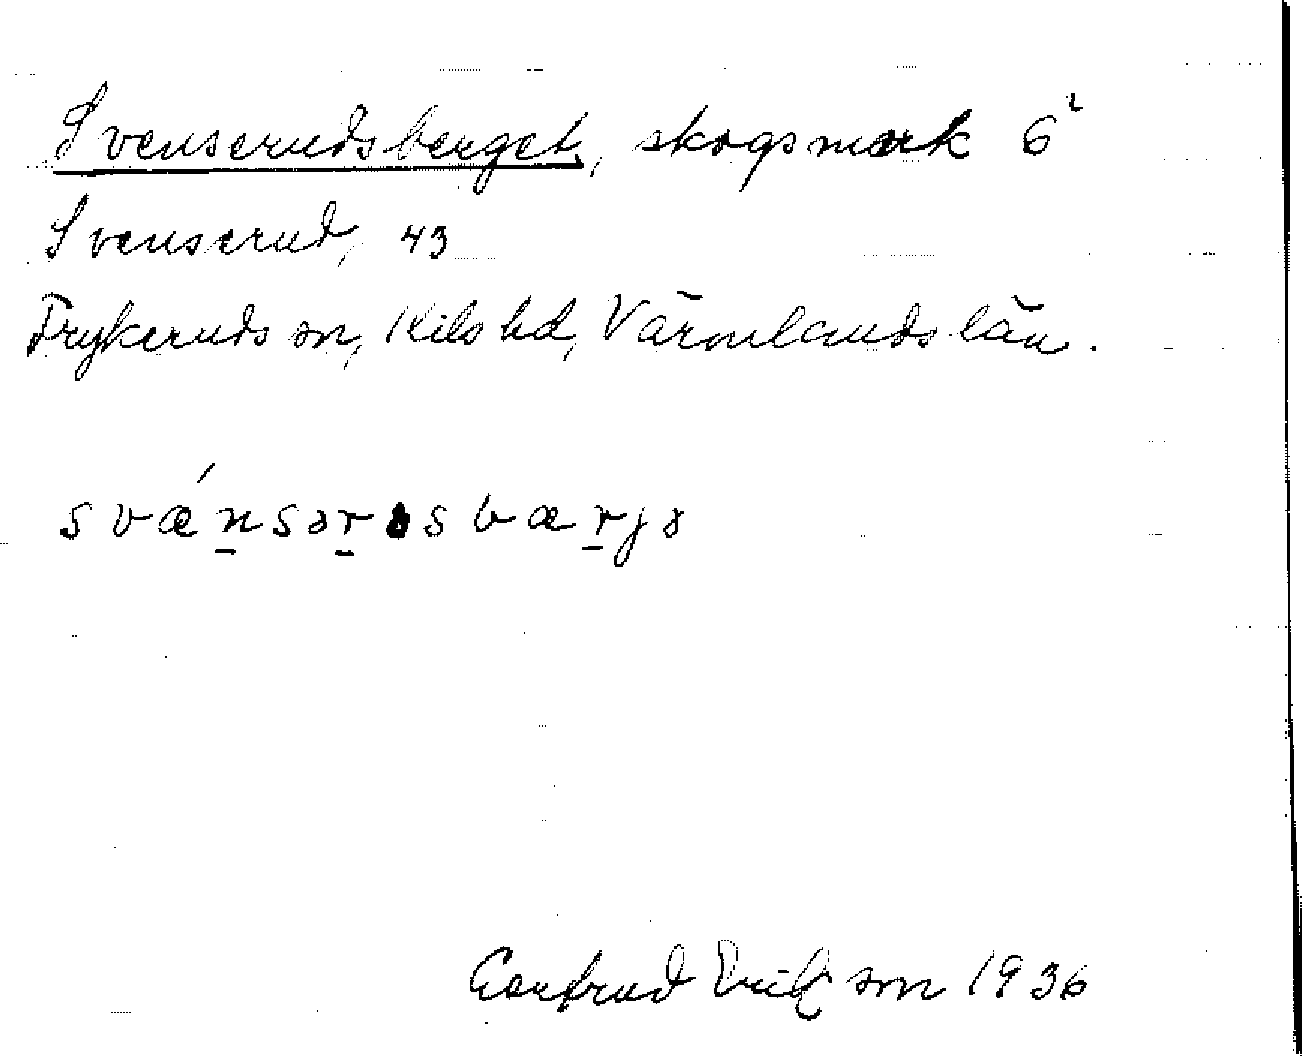 Svenserudsberget, skogsmark 6²
Svenserud, 43
Frykeruds sn, Kils hd, Värmlands län.
svǽn̠sər̠ɷsbær̠jə
son 1936